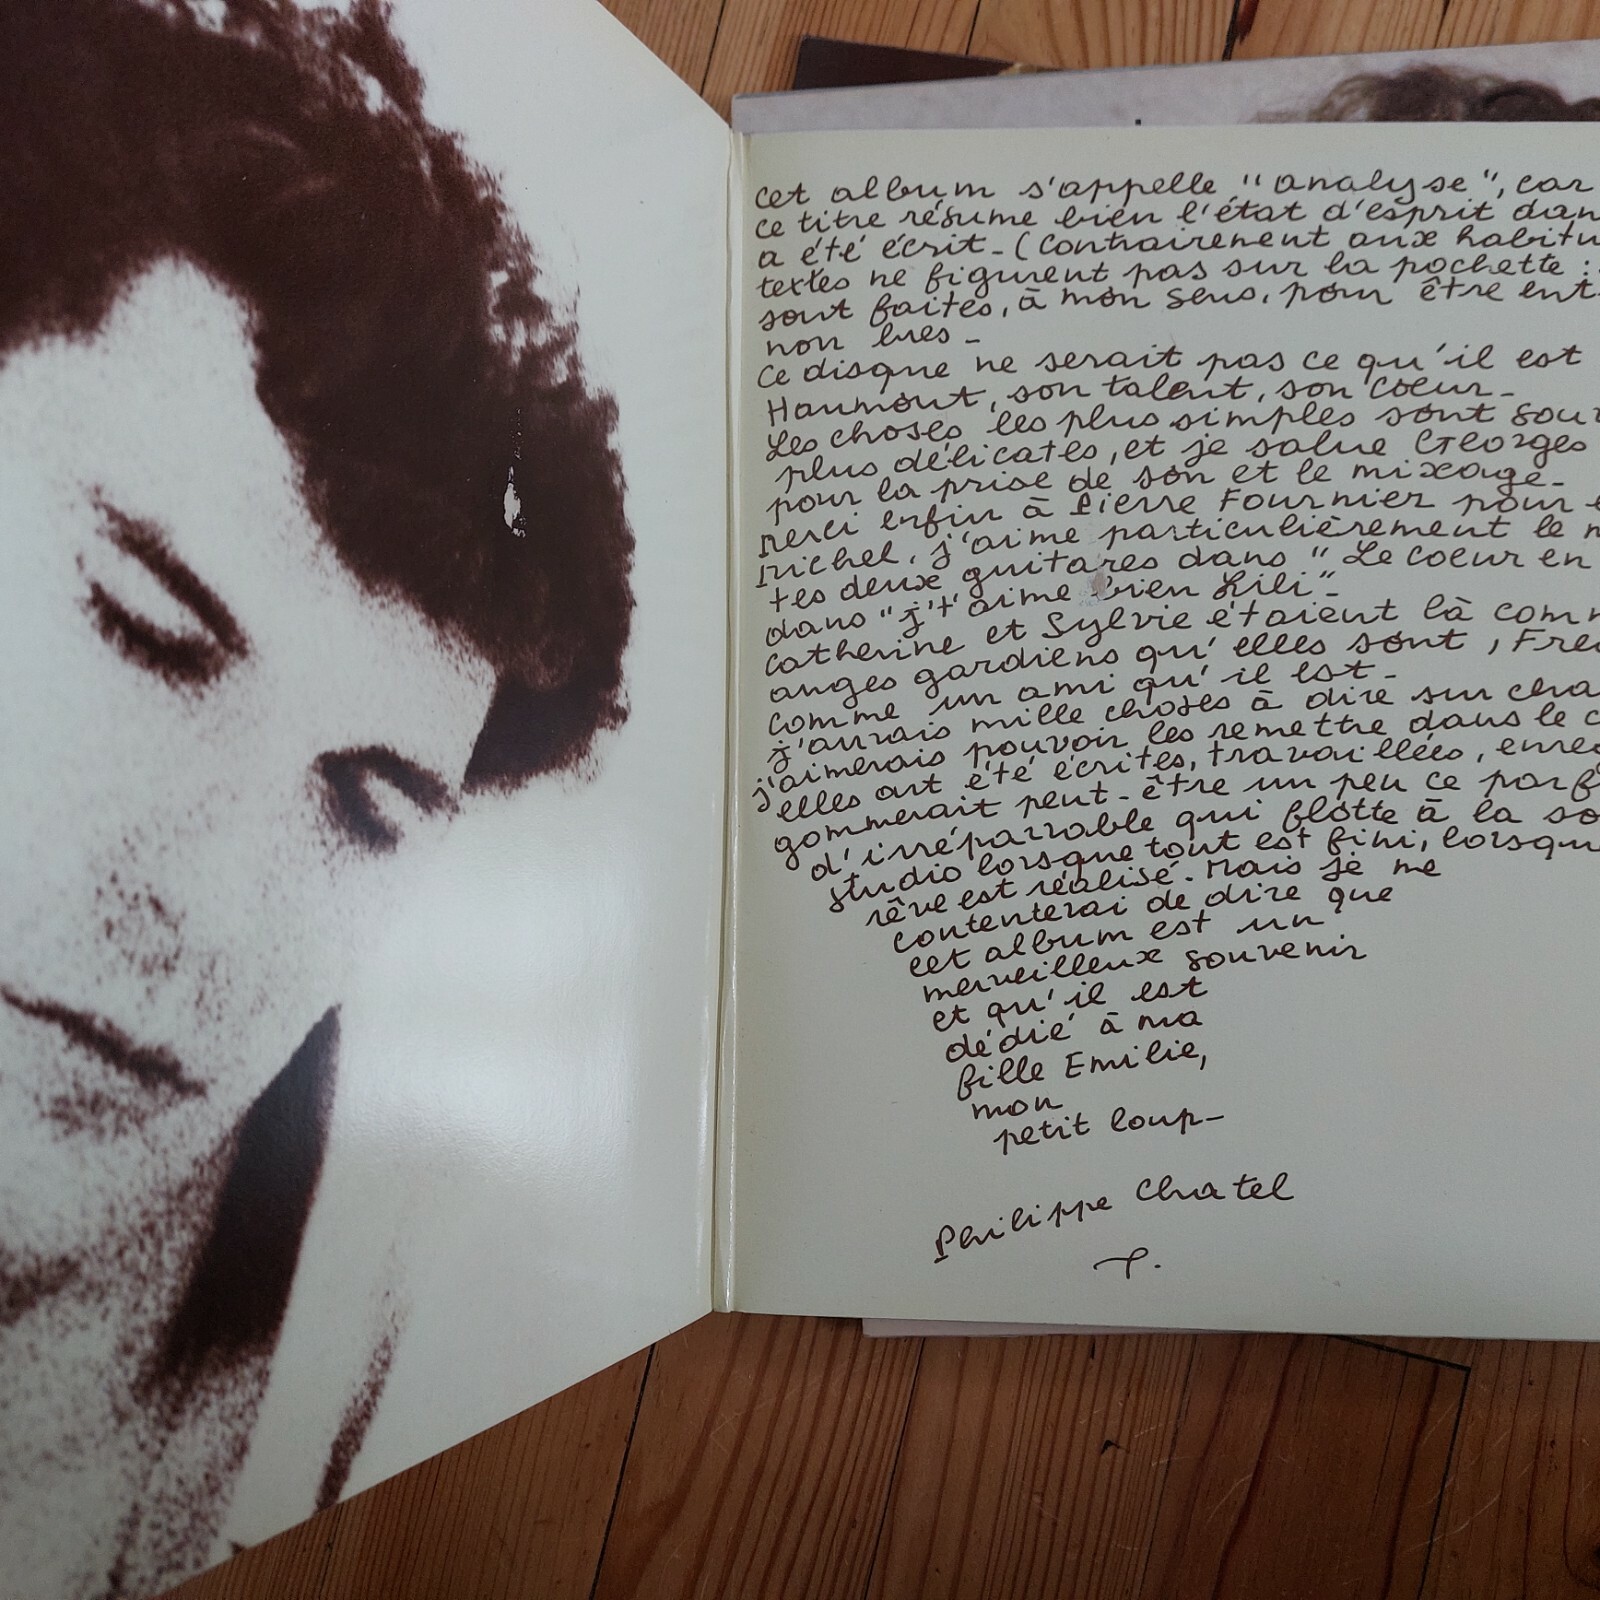 cet album s'appelle "analyse", car
ce titre résume bien l'état d'esprit dan
a été écrit_ (contrairement aux habitu
textes ne figurent pas sur la pochette :
sont faites, à mon sens, pour être ent
non lues _
ce disque ne serait pas ce qu'il est
Haumont, son talent, son coeur_
Les choses les plus simples sont souv
plus délicates, et je salue Georges
pour la prise de son et le mixage_
merci enfin à Pierre Fournier pour
Michel, j'aime particulièrement le
tes deux guitares dans "Le coeur en
dans "j't'aime bien Lili"_
Catherine et Sylvie étaient là comm
anges gardiens qu'elles sont, Fre
comme un ami qu'il est_
j'aurais mille choses à dire sur cha
j'aimerais pouvoir les remettre dans le c
elles ont été écrites, travaillées, enre
gommerait peut-être un peu ce parf
d'irréparrable qui flotte à la so
studio lorsque tout est fini, lorsqu
rêve est réalisé_ Mais je me
contenterai de dire que
cet album est un
merveilleux souvenir
et qu'il est
dédié à ma
fille Emilie,
mon
petit loup_
Philippe Chatel